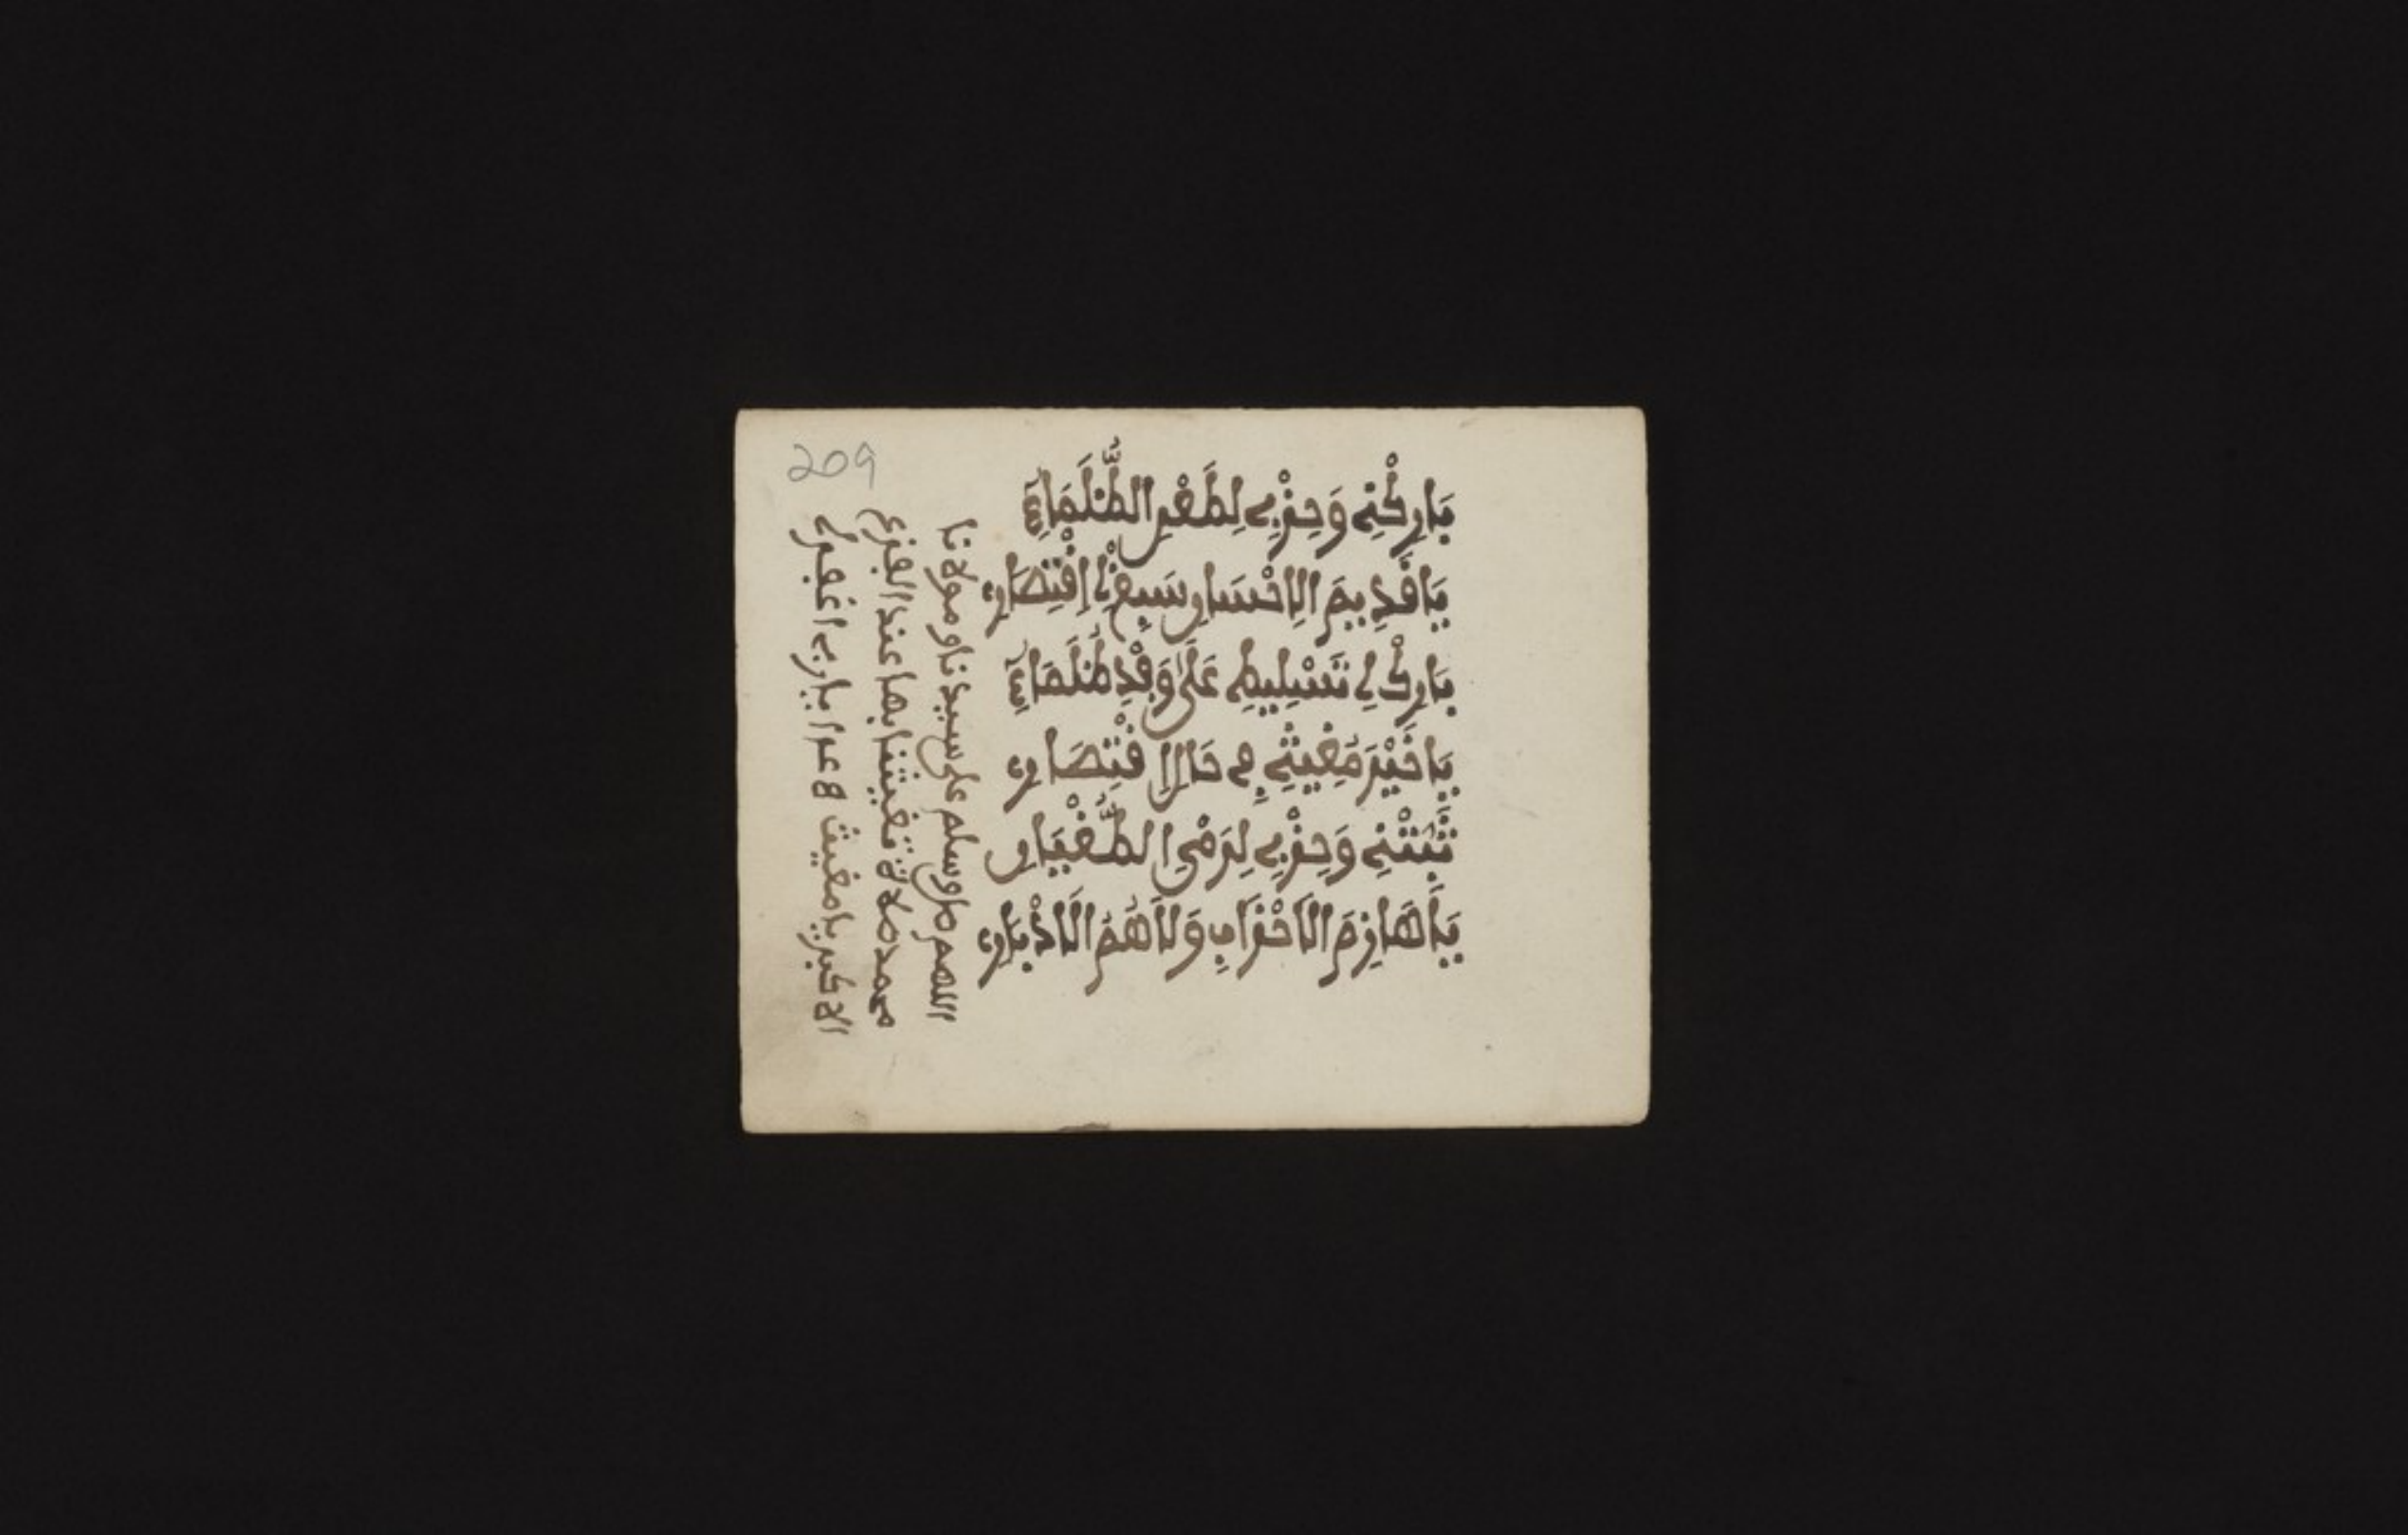 209
بَارِكْنِے وَحِزْبِے لِطَعْنِ الظُّلَمَاءِ
يَا قَدِيمَ الِاحْسَانِ سَيِّعْنَا اِقْتِصَارِ
بَارِكْ لِے تَسْلِيطِے عَلَىٰ وَفْدِ ظُلَمَاءِ
يَا خَيْرَ مُغِيثِے فِے حَالِ اِفْتِصَارِ
ثَبِّتْنِے وَحِزْبِے لِرَمْيِ الطُّغْيَانِ
يَا هَازِمَ الَاحْزَابِ وَلَاهُمُ الَادْبَارِ
اللهم صل وسلم على سيدنا ومولانا
محمد صلاة تغيثنا بها عند الفزع
الاكبر يا مغيث ياربے اغفرلے